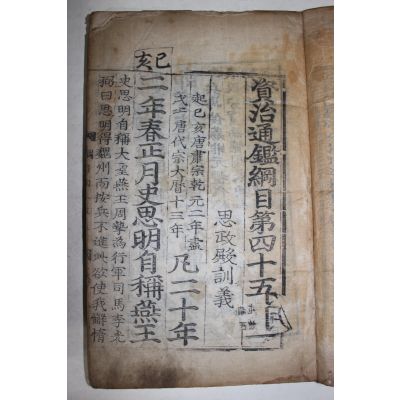 資治通鑑綱目第四十五
思政殿訓義
起己亥唐肅宗乾元二年盡
戊午唐代宗大曆十三年
凡二十年
己亥
二年春正月史思明自稱燕王
史思明自稱大聖燕王周摯為行軍司馬李光
弼曰思明得魏州而按兵不進此欲使我懈惰